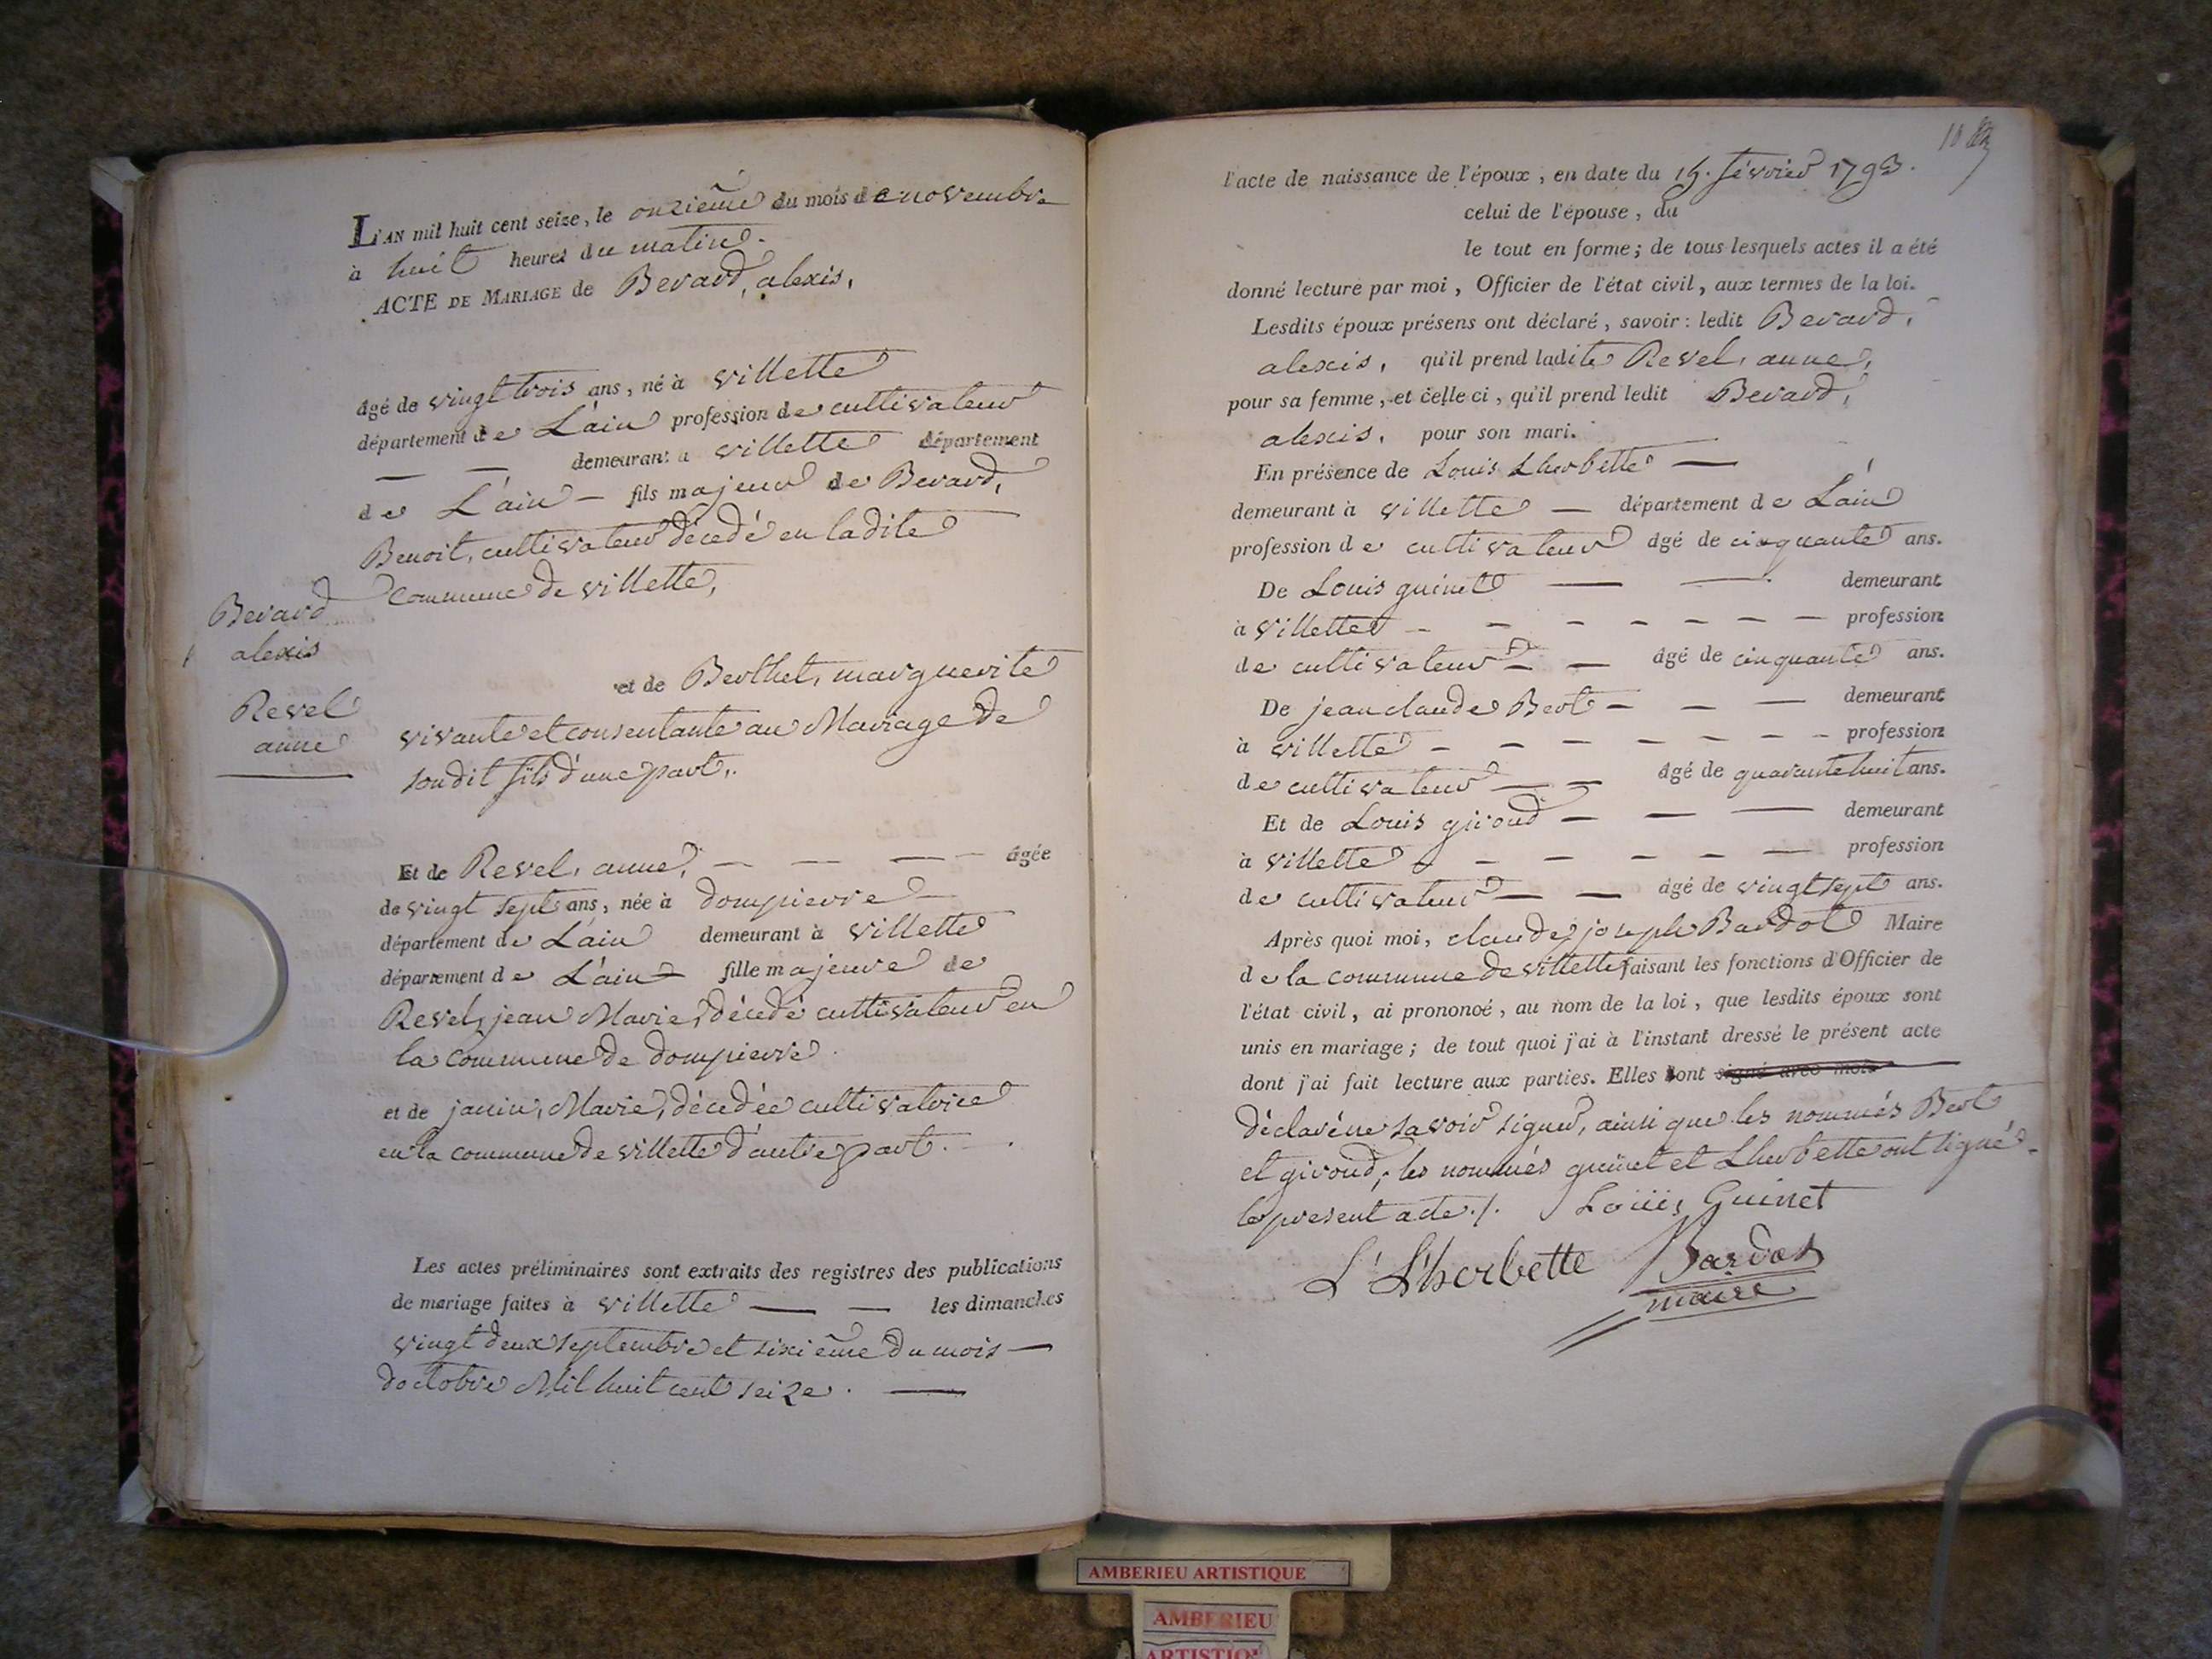 L'AN mil huit cent seize, le onzième du mois de novembre
à huit heures du matin.
ACTE DE MARIAGE de Berard, alexis,
âgé de vingt trois ans, né à villette
département de L'ain profession de cultivateur
— — demeurant à villette département
de L'ain — fils majeur de Berard,
Benoit, cultivateur décedé en ladite
commune de villette,
Berard
alexis
Revel
anne
et de Berthet, marguerite
vivante et consentante au Mariage de
sondit fils d'une part,.
Et de Revel, anne, — — — — âgée
de vingt sept ans, née à dompierre —
département de L'ain demeurant à villette
département de L'ain — fille majeure de
Revel, jean Marie, décedé cultivateur en
la commune de dompierre.
et de janin, Marie, décedée cultivatrice
en la commune de villette d'autre part.
Les actes préliminaires sont extraits des registres des publications
de mariage faites à villette — — les dimanches
vingt deux septembre et sixième du mois —
doctobre Mil huit cent seize. —
l'acte de naissance de l'époux, en date du 15. février 1793.
celui de l'épouse, du
le tout en forme; de tous lesquels actes il a été
donné lecture par moi, Officier de l'état civil, aux termes de la loi.
Lesdits époux présens ont déclaré, savoir: ledit Berard,
alexis, qu'il prend ladite Revel, anne,
pour sa femme, et celle ci, qu'il prend ledit Berard,
alexis, pour son mari.
En présence de Louis Lherbette —
demeurant à villette — département de Lain
profession de cultivateur âgé de cinquante ans.
De Louis guinet — — demeurant
à villette — — — — — — — profession
de cultivateur — — âgé de cinquante ans.
De jean claude Bert — — — demeurant
à villette — — — — — — — profession
de cultivateur — — âgé de quarante huit ans.
Et de Louis giroud — — — demeurant
à villette — — — — — — profession
de cultivateur — — âgé de vingt sept ans.
Après quoi moi, claude, joseph Bardot Maire
de la commune de villette faisant les fonctions d'Officier de
l'état civil, ai prononcé, au nom de la loi, que lesdits époux sont
unis en mariage; de tout quoi j'ai à l'instant dressé le présent acte
dont j'ai fait lecture aux parties. Elles ont signé avec moi
déclaré ne savoir signer, ainsi que les nommés Bert
et giroud, les nommés guinet et Lherbette ont signé
le present acte./. Loüis Guinet
L' L'herbette Bardot
maire
AMBERIEU ARTISTIQUE
AMBERIEU
ARTISTIQUE